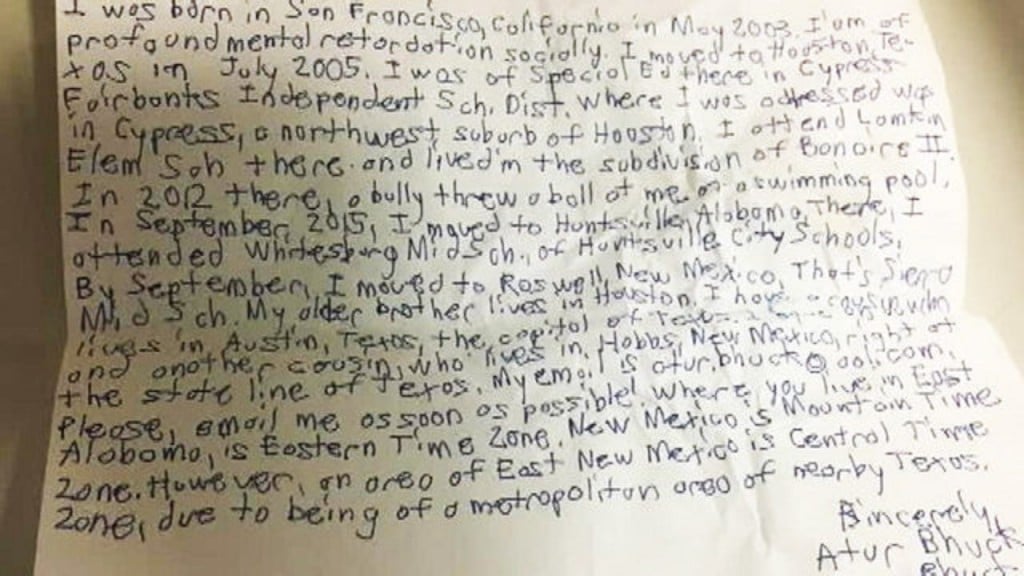 I was born in San Francisco, California in May 2003. I'am of
profound mental retardation socially. I moved to Houston, Te-
xas in July 2005. I was of Special Ed there in Cypress
Fairbanks Independent Sch. Dist. where I was addressed was
in Cypress, a northwest suburb of Houston. I attend Lamkin
Elem Sch there and lived in the subdivision of Bonaire II.
In 2012 there, a bully threw a ball at me at a swimming pool.
In September, 2015, I moved to Huntsville, Alabama. There, I
attended Whitesburg Mid Sch. of Huntsville City Schools.
By September, I moved to Roswell, New Mexico. That's Sierra
Mid Sch. My older brother lives in Houston. I have a cousin who
lives in Austin, Texas, the capital of
and another cousin, who lives in Hobbs, New Mexico, right at
the state line of Texas. My email is atur.bhuck@aol.com.
Please, email me as soon as possible! Where you live in East
Alabama, is Eastern Time Zone. New Mexico is Mountain Time
Zone. However, an area of East New Mexico is Central Time
Zone, due to being of a metropolitan area of nearby Texas.
Sincerely,
Atur Bhuck